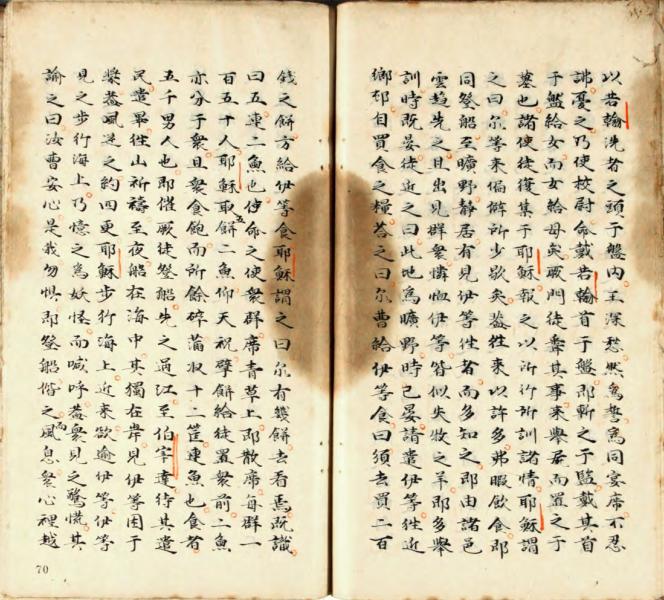 以若翰洗者之頭于盤內王深愁然為誓為同宴席不忍
誹憂之乃使校尉命戴若翰首于盤即斬之于監戴其首
于盤給女而女給母矣厥門徒聞其事來舉屍而置之于
墓也諸使徒復集于耶穌報之以所行所訓諸情耶穌謂
之曰尔等來偏僻所少歇矣蓋徃來以許多弗暇飲食即
同登船至曠野静居有見伊等徃者而多知之即由諸邑
雲趋先之且出見群衆憐恤伊等皆似失牧之羊即多舉
訓時既晏徒近之曰此地為曠野時已晏請遣伊等徃近
鄉邨自買食之糧荅之曰尔曹給伊等食曰須去買二百
錢之餅方給伊等食耶穌謂之曰尔有幾餅去看焉既識
曰五連二魚也伊命之使衆群席青草上即散席每群一
百五十人耶穌取五餅二魚仰天祝擘餅給徒置衆前二魚
亦分于衆且衆食飽而所餘碎菑収十二筐連魚也食者
五千男人也即催厥徒登船先之過江至伯宰達待其遣
民遣畢徃山祈禱至夜船在海中其獨在岸見伊等困于
槳蓋風逆之約四更耶穌步行海上近來欲逾伊等伊等
見之步行海上乃憶之為妖怪而喊呼蓋衆見之驚慌其
諭之曰汝曹安心是我勿惧即登船偕之而風息衆心裡越
70